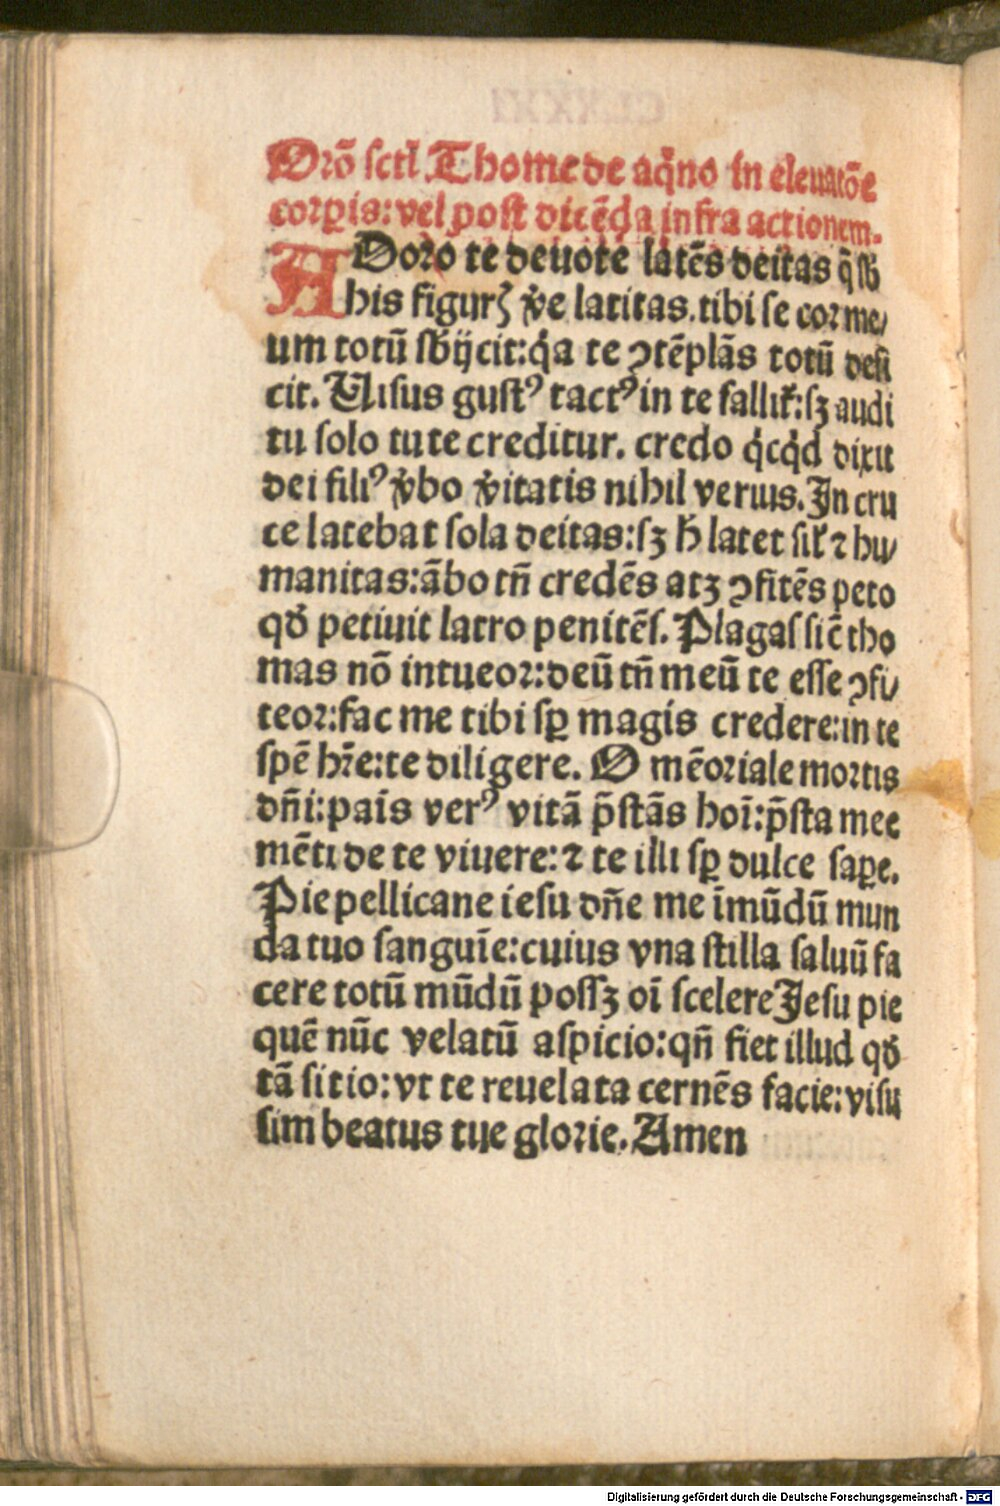 Orō sctī Thome de aq̄no in eleuatōe
corꝑis: vel post dicēda infra actionem.
ADoro te deuote latēs deitas q̄ sƀ
his figurꝭ v̄e latitas. tibi se cor me/
um totū sƀijcit: q̄a te ↄtēplās totū defi
cit. Uisus gustꝰ tactꝰ in te fallit᷑: sꝫ audi
tu solo tute creditur. credo q̇cq̇d dixit
dei filiꝰ v̄bo v̄itatis nihil verius. In cru
ce latebat sola deitas: sꝫ h̄ latet sil̄ ⁊ hu/
manitas: ābo tn̄ credēs atꝫ ↄfitēs peto
qđ petiuit latro penitēs. Plagas sic̄ tho
mas nō intueor: deū tn̄ meū te esse ↄfi/
teor: fac me tibi sꝑ magis credere: in te
spē hr̄e: te diligere. O mēoriale mortis
dn̄i: panīs verꝰ vitā p̄stās hoī: p̄sta mee
mēti de te viuere: ⁊ te illi sꝑ dulce saꝑe.
Pie pellicane iesu dn̄e me īmūdū mun
da tuo sanguīe: cuius vna stilla saluū fa
cere totū mūdū possꝫ oī scelere Jesu pie
quē nūc velatū aspicio: qn̄ fiet illud qđ
tā sitio: vt te reuelata cernēs facie: visu
sim beatus tue glorie. Amen
Digitalisierung gefördert durch die Deutsche Forschungsgemeinschaft - DFG